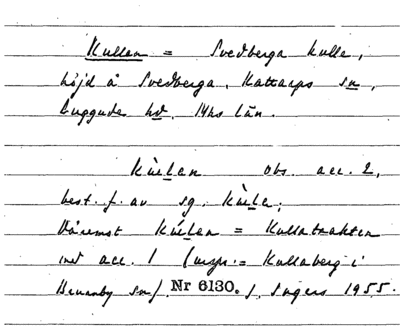 Kullen = Svedberga kulle,
höjd å Svedberga, Kattarps sn,
Luggude hd. Mhs län.
Kùlen obs. acc. 2,
best. f. av sg. kùle;
Däremot Kúlen = Kullatrakten
med acc. 1 (urspr. = Kullaberg i
Brunnby sn). Nr 6130. J. Ingers 1955.